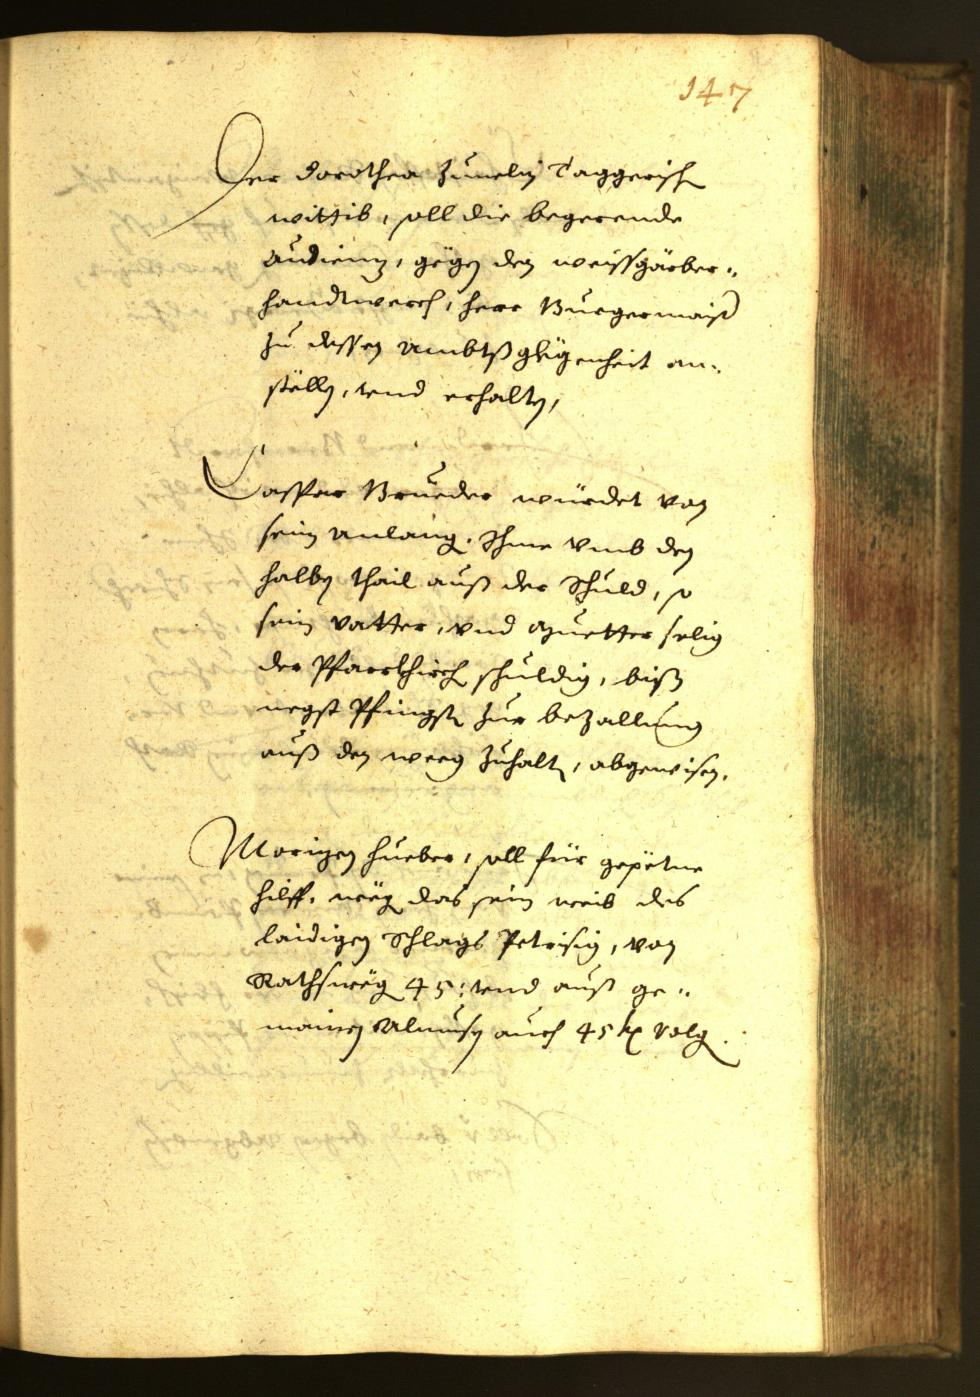 147
Der Dorothea Zumelin Taggerisch
wittib, soll die begerende
Audienz, gegen den weissgärber„
handtwerch, herr Burgermaister
zu dessen Ambtsglegenheit an„
stellen, vnd erhalten,
Casspar Brueder würdet von
sein anlang. Ihme vmb den
halben thail auß der Schuld, so
sein vatter, vnd Muetter selig
der Pfarrkirch schuldig, biß
negst Pfingsten zur bezallung
auß den weeg zuhalten, abgewisen.
Morizen hueber, soll für gepetne
hilff, weg das sein weib des
laidigen Schlags , von
Rathsweg 45: vnd auß ge„
mainen Almusen auch 45 kr volgen.